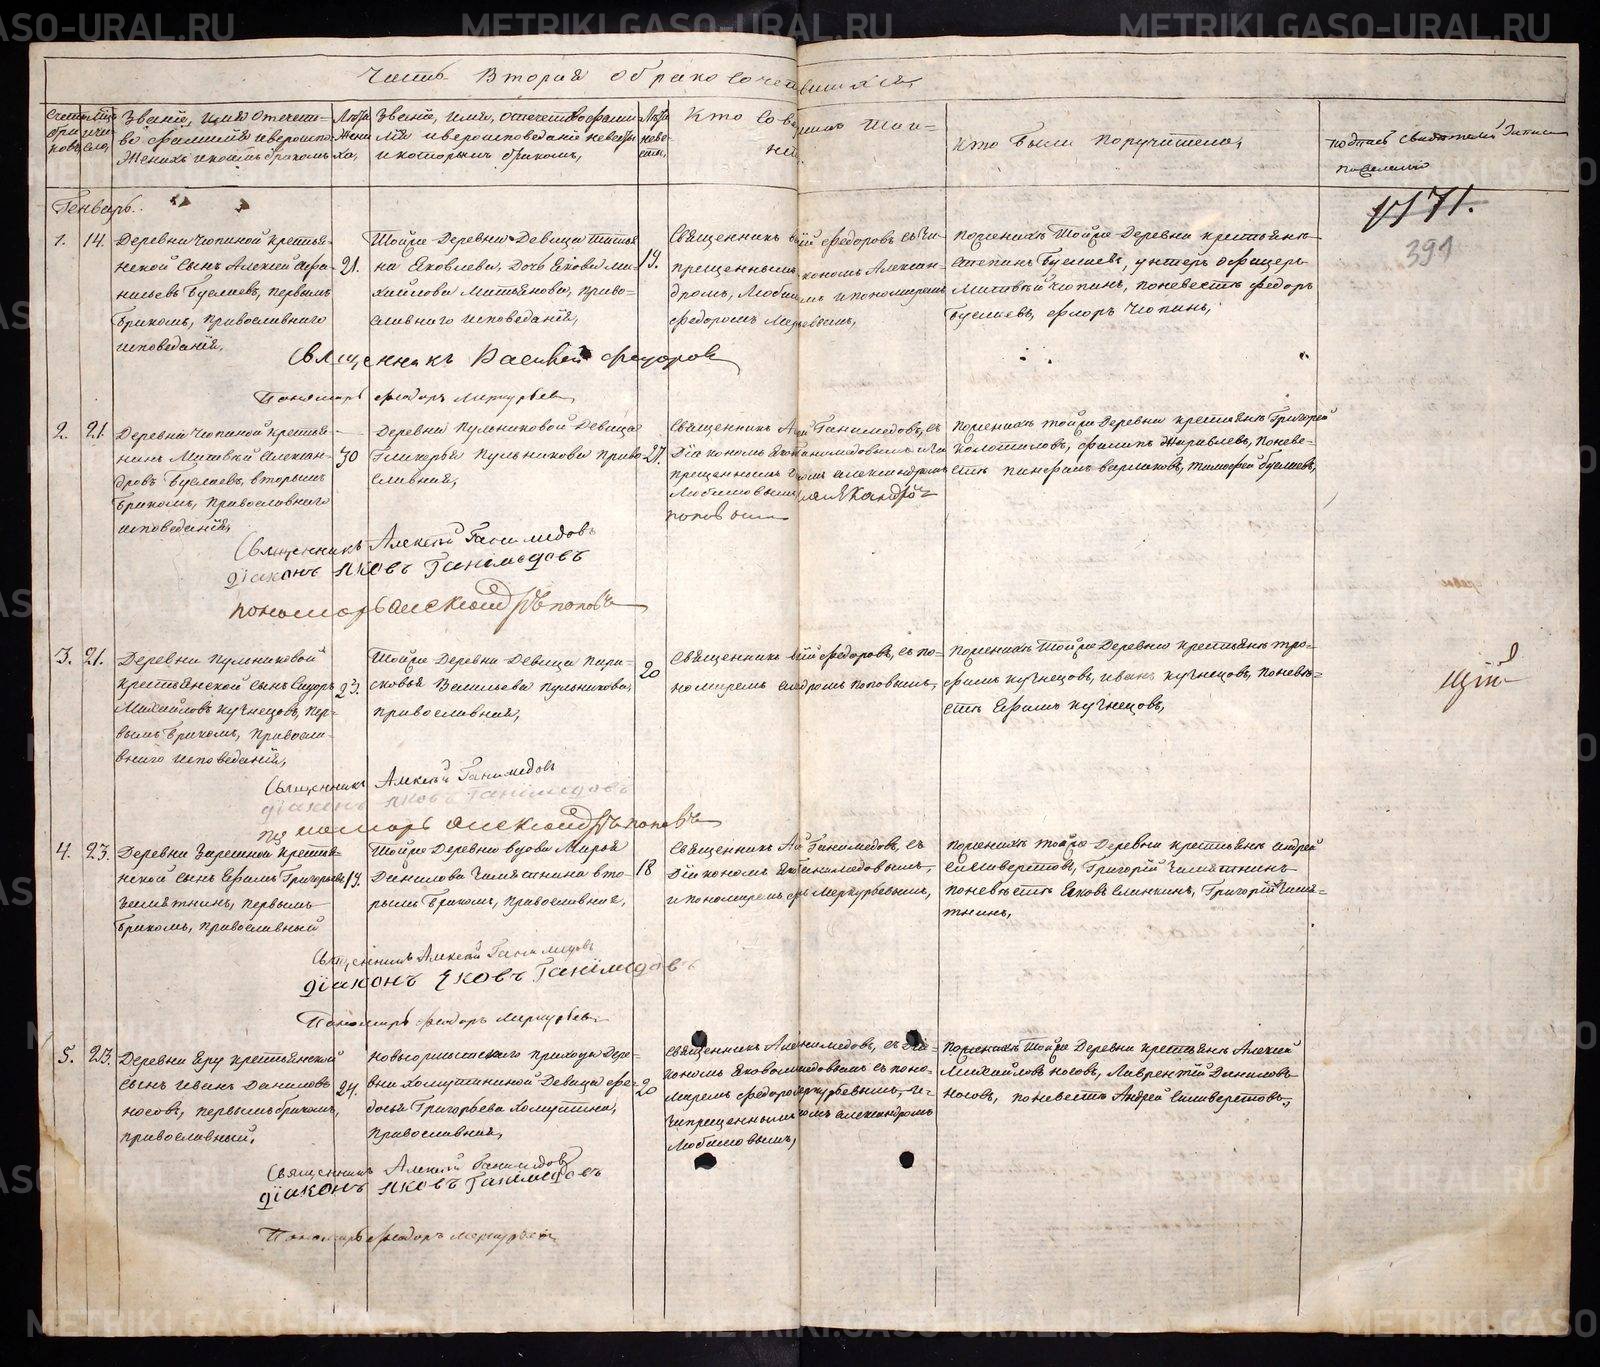 Часть Вторая о бракосочетавшихся,
Счетъ браковъ
Мѣсяцъ и число,
Званіе, имя, отечество, фамилія и вероисповѣданіе Жениха и коимъ бракомъ,
Лѣта Жениха,
Званіе, имя, отечество, фамилія и вероисповѣданіе невесты и которымъ бракомъ,
Лѣта невесты,
Кто совершилъ таинство
Кто были поручители,
подпись свидѣтелей записи по желанію
171.
391
Генварь.
1. 14.
Деревни Чюпиной крестья-
нской сынъ Алексей Афа-
насьевъ Буслаевъ, первымъ
бракомъ, православнаго
исповеданія,
21.
Тойже Деревни Девица Татья-
на Яковлева, Дочь Якова Ми-
хайлова Матьянова, право-
славнаго исповеданія,
19.
Священникъ Федоровъ съ
дромъ, и пономаремъ
Федоромъ Меркурьевымъ,
пожениху Тойже Деревни крестьянѣ
Степанъ Буслаевъ, унтеръ офицеръ
Матвѣй Чюпинъ, поневестѣ Федоръ
Буслаевъ, Флоръ Чюпинъ,
Священникъ Василей Федоровъ
Пономарь Феодоръ Меркурьевъ
2. 21.
Деревни Чюпиной крестья-
нинъ Матвѣй Алексан-
дровъ Буслаевъ, вторымъ
бракомъ, православнаго
исповеданія,
30
Деревни Пульниковой Девица
Гликерья Пульникова право-
славная,
27.
Священникъ Ганимедовъ, съ
Діакономъ Ганимедовымъ
Любимовымъ, Александромъ
Поповымъ
пожениху тойже Деревни крестьянѣ Григорей
Колотиловъ, Филипъ Журавлевъ, поневе-
стѣ Панфилъ Варлаковъ, Тимофей Буслаевъ,
Священникъ Алексѣй Ганимедовъ
Діаконъ Яковъ Ганимедовъ
пономарь Александръ Поповъ
3. 21.
Деревни Пульниковой
крестьянской сынъ Сидоръ
Михайловъ Кузнецовъ, пер-
вымъ бракомъ, правосла-
внаго исповеданія,
23.
Тойже Деревни Девица Пара-
сковья Васильева Пульникова,
православная,
20
Священникъ Федоровъ, съ по-
номаремъ Поповымъ,
пожениху Тойже Деревни крестьянѣ Тро-
фимъ Кузнецовъ, Иванъ Кузнецовъ, поневѣ-
стѣ Ефимъ Кузнецовъ,
Священникъ Алексѣй Ганимедовъ
діаконъ Яковъ Ганимедовъ
пономарь Александръ Поповъ
щій
4. 23.
Деревни Заречной крестья-
нской сынъ Ефимъ Григорьевъ
первымъ
бракомъ, православный
19.
Тойже Деревни вдова Марья
Данилова вто-
рымъ бракомъ, православная,
18
Священникъ Ганимедовъ, съ
Діакономъ Ганимедовымъ,
и пономаремъ Меркурьевымъ,
пожениху тойже Деревни крестьянѣ Андрей
Селиверстовъ, Григорій
поневѣстѣ Яковъ Слинкинъ, Григорій
Священникъ Алексѣй Ганимедовъ
діаконъ Яковъ Ганимедовъ
Пономарь Феодоръ Меркурьевъ
5. 23.
Деревни Яру крестьянской
сынъ Иванъ Даниловъ
Носовъ, первымъ бракомъ,
православный,
24.
прихода Дере-
вни Хомутининой Девица Фе-
досья Григорьева Хомутина,
православная,
20
Священникъ Ганимедовъ, съ Діа-
кономъ Яковомъ Ганимедовымъ съ поно-
маремъ Федоромъ Меркурьевымъ, и
Александромъ
Любимовымъ,
пожениху Тойже Деревни крестьянѣ Алексей
Михайловъ Носовъ, Лаврентій Даниловъ
Носовъ, поневестѣ Андрей Селиверстовъ,
Священникъ Алексѣй Ганимедовъ
діаконъ Яковъ Ганимедовъ
Пономарь Феодоръ Меркурьевъ
METRIKI.GASO-URAL.RU